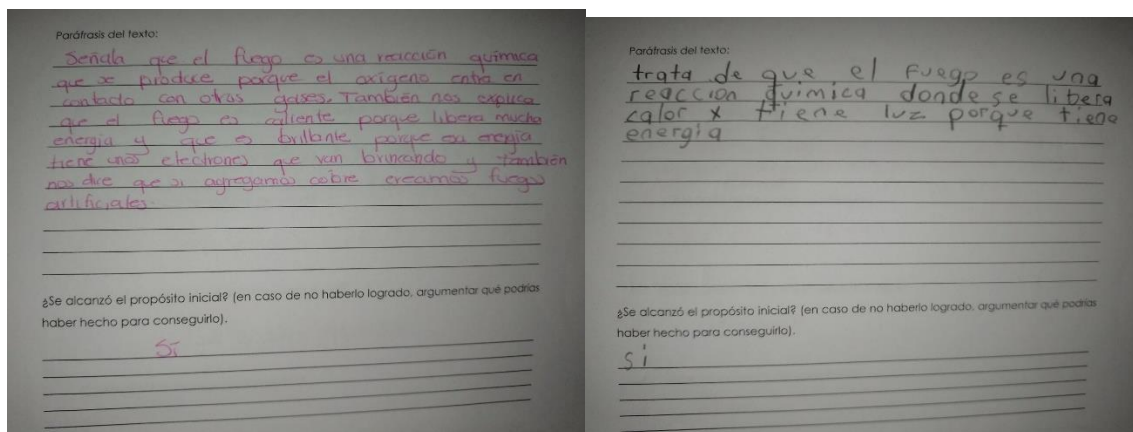 Paráfrasis del texto:
Señala que el fuego es una reacción química
que se produce porque el oxígeno entra en
contacto con otros gases. También nos explica
que el fuego es caliente porque libera mucha
energía y que es brillante porque esa energía
tiene unos electrones que van brincando y también
nos dice que si agregamos cobre creamos fuegos
artificiales.
¿Se alcanzó el propósito inicial? (en caso de no haberlo logrado, argumentar qué podrías
haber hecho para conseguirlo).
Sí
Paráfrasis del texto:
trata de que el fuego es una
reaccion quimica donde se libera
calor x tiene luz porque tiene
energia
¿Se alcanzó el propósito inicial? (en caso de no haberlo logrado, argumentar qué podrías
haber hecho para conseguirlo).
si